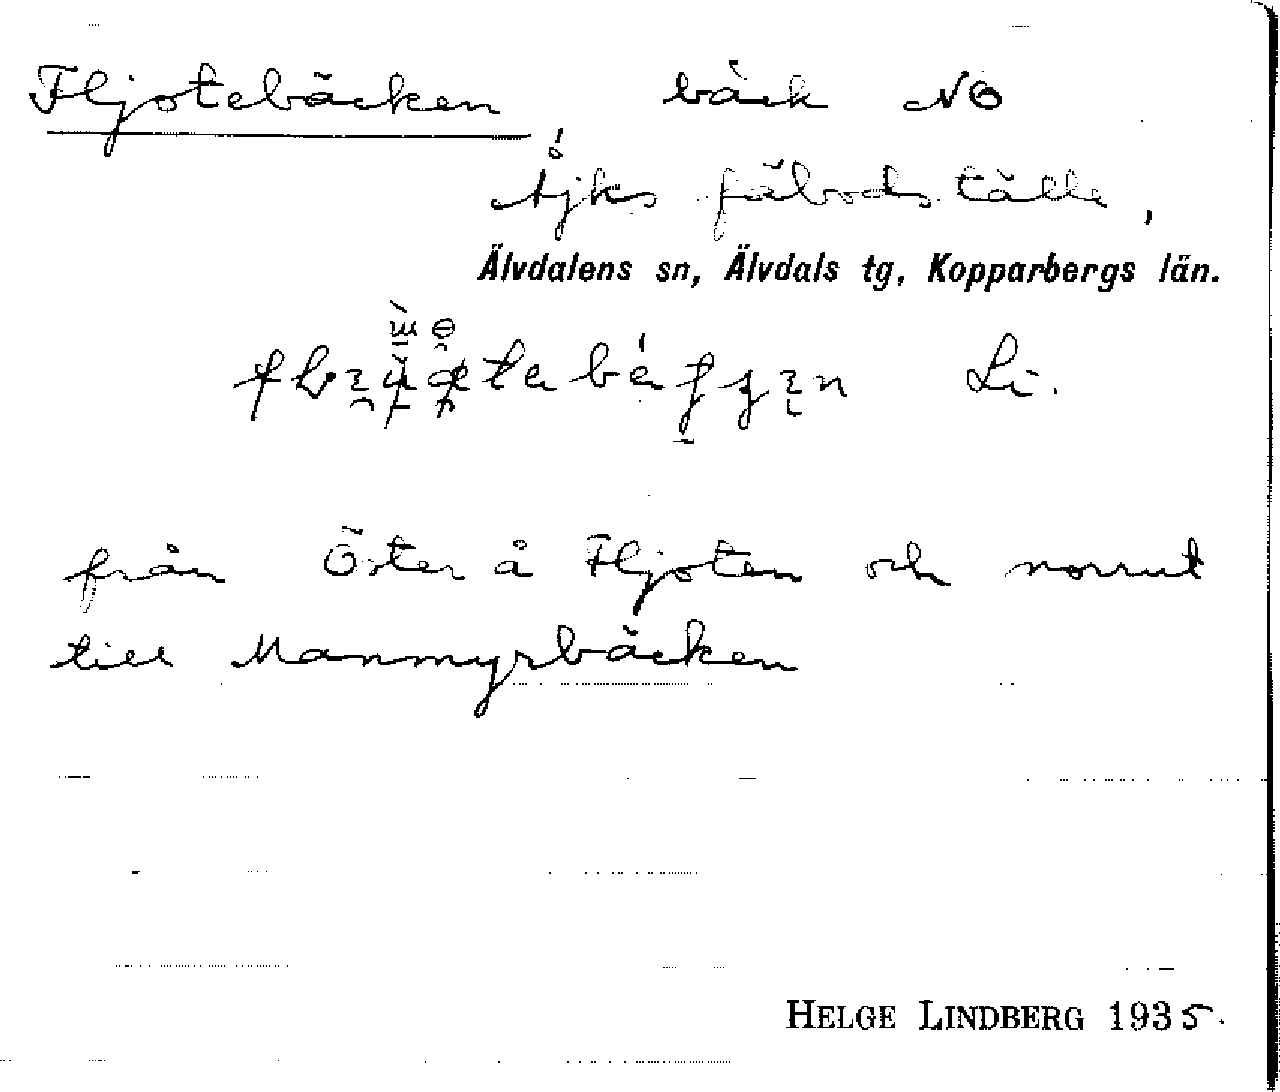 Fljotebäcken bäck NO
Åjks fäbodställe,
Älvdalens sn, Älvdals tg, Kopparbergs län.
Li.
från Österå Fljoten och norrut
till Manmyrbäcken
HELGE LINDBERG 1935.